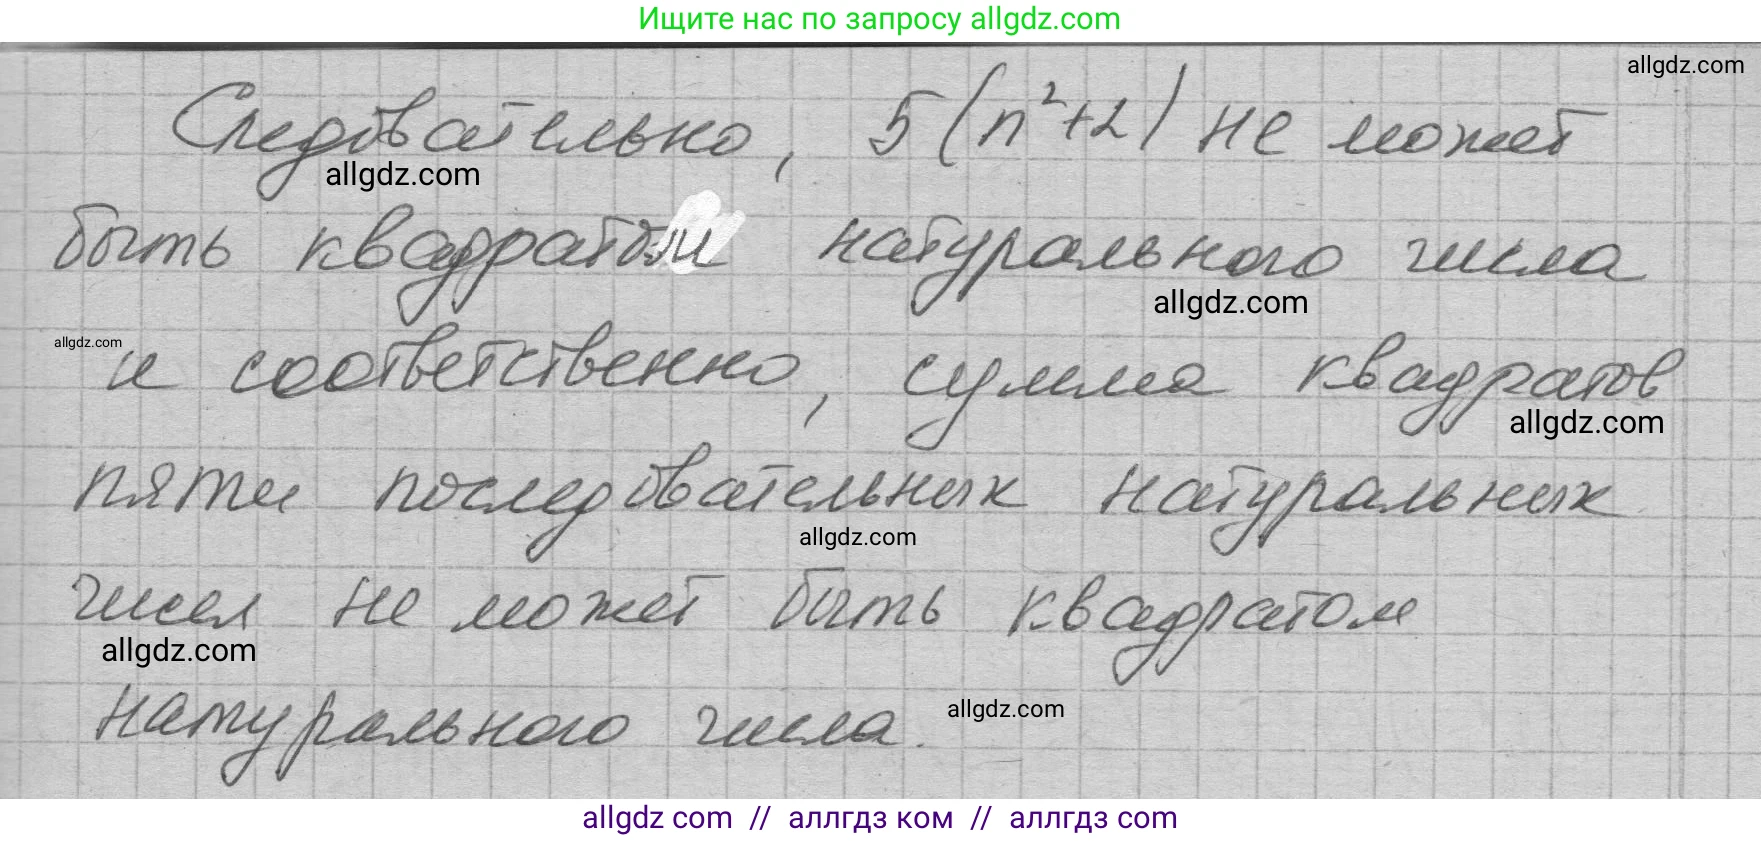 Ищите нас по запросу allgdz.com
allgdz.com
Следовательно, 5(n²+2) не может
allgdz.com
быть квадратом натурального числа
allgdz.com
allgdz.com
и соответственно, сумма квадратов
allgdz.com
пяти последовательных натуральных
allgdz.com
чисел не может быть квадратом
allgdz.com
натурального числа.
allgdz.com
allgdz com // аллгдз ком // аллгдз com